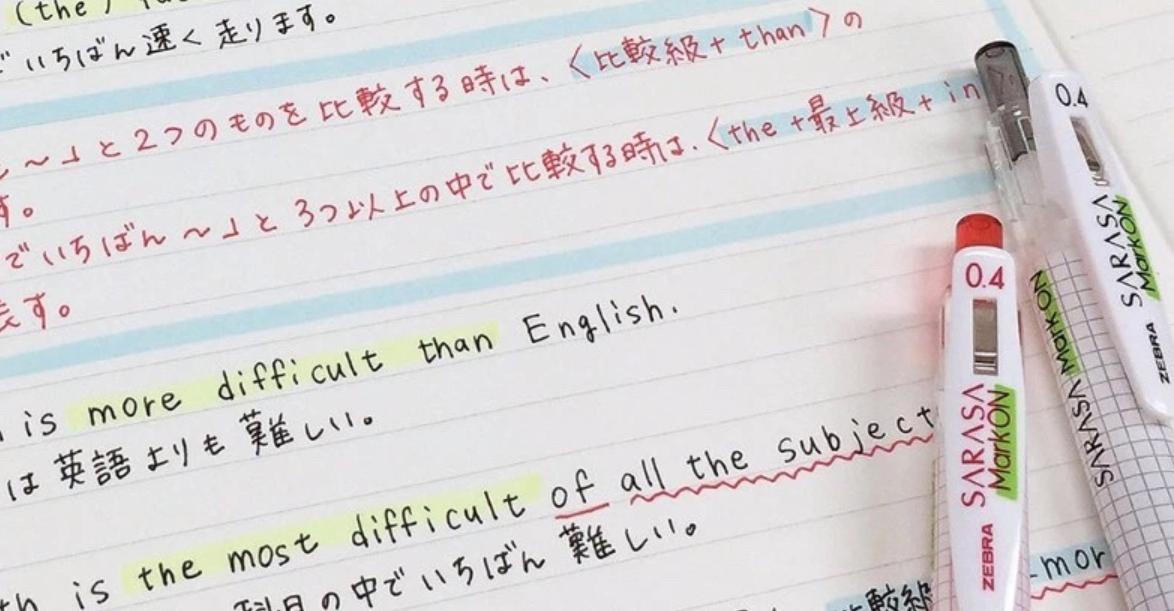 (the)
いちばん速く走ります。
〜」と2つのものを比較する時は、〈比較級+than〉の
す。
でいちばん〜」と3つ以上の中で比較する時は、〈the+最上級+in
表す。
is more difficult than English.
は英語よりも難しい。
is the most difficult of all the subject
科目の中でいちばん難しい。
比較級
mor
0.4
SARASA
MarkON
ZEBRA
0.4
SARASA
MarkON
ZEBRA
SARASA MarkON